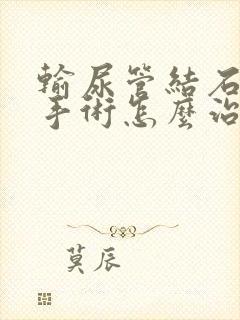 輸尿管結石
手術怎麼治
莫辰